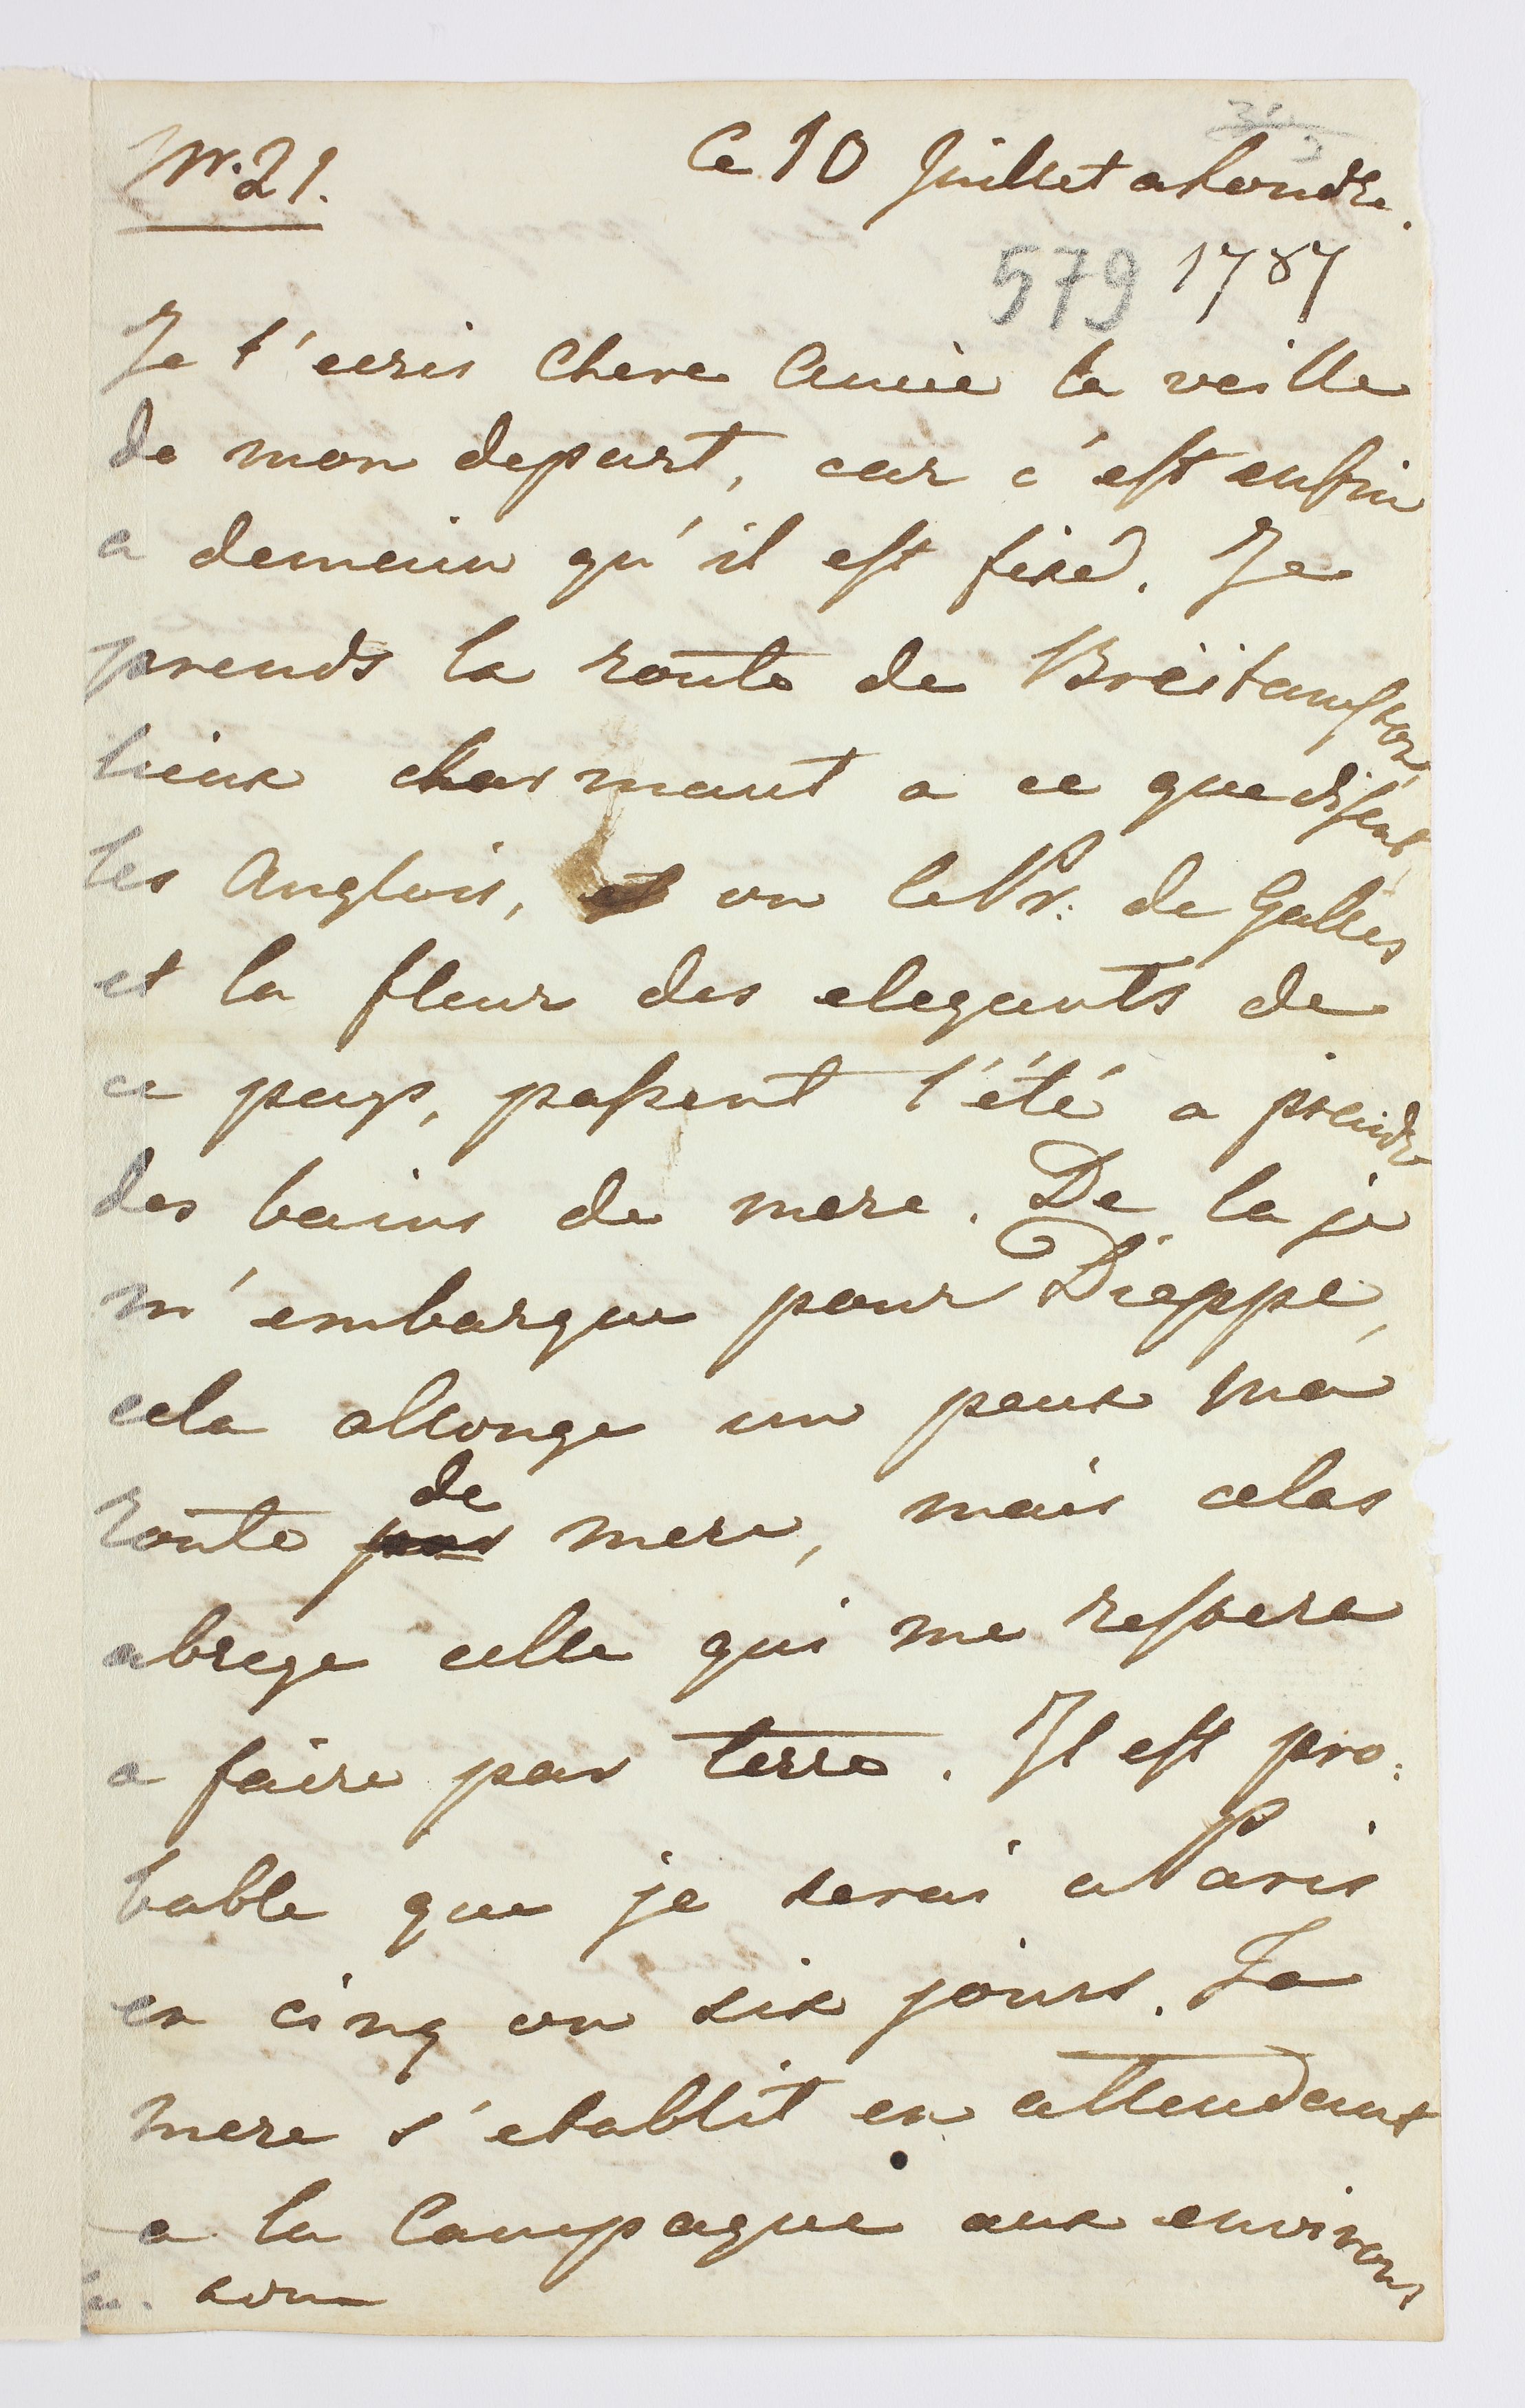 Nr. 21.
Ce 10 Juillet a Londre.
579 1787
Je t'ecris Chere Amie la veille
de mon depart, car c'est enfin
a demain qu'il est fixé. Je
prends la route de Breitamston,
lieux charmant a ce que disent
les Anglois, ou le Pr: de Galles
et la fleur des elegants de
ce pays, passent l'été a prendre
des bains de mere. De la je
m'embarque pour Dieppe,
cela allonge un peux ma
route de mere, mais celas
abrege celle qui me restera
a faire par terre. Il est pro:
bable que je serai a Paris
en cinq ou six jours. Ja
mere s'etablit en attendant
a la Campagne aux environs